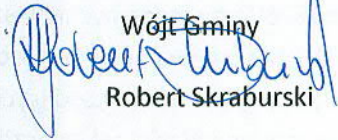 Wójt Gminy
Robert Skraburski